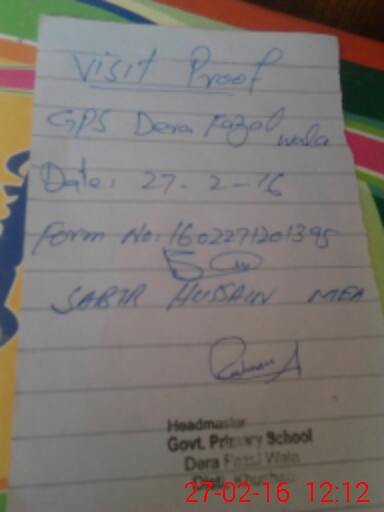 Visit Proof
GPS Dera Fazal wala
Date: 27-2-16
Form No: 1602271201395
SABIR HUSSAIN MEA
Headmaster
Govt. Primary School
Dera Fazal Wala
Distt. Khushab
27-02-16 12:12